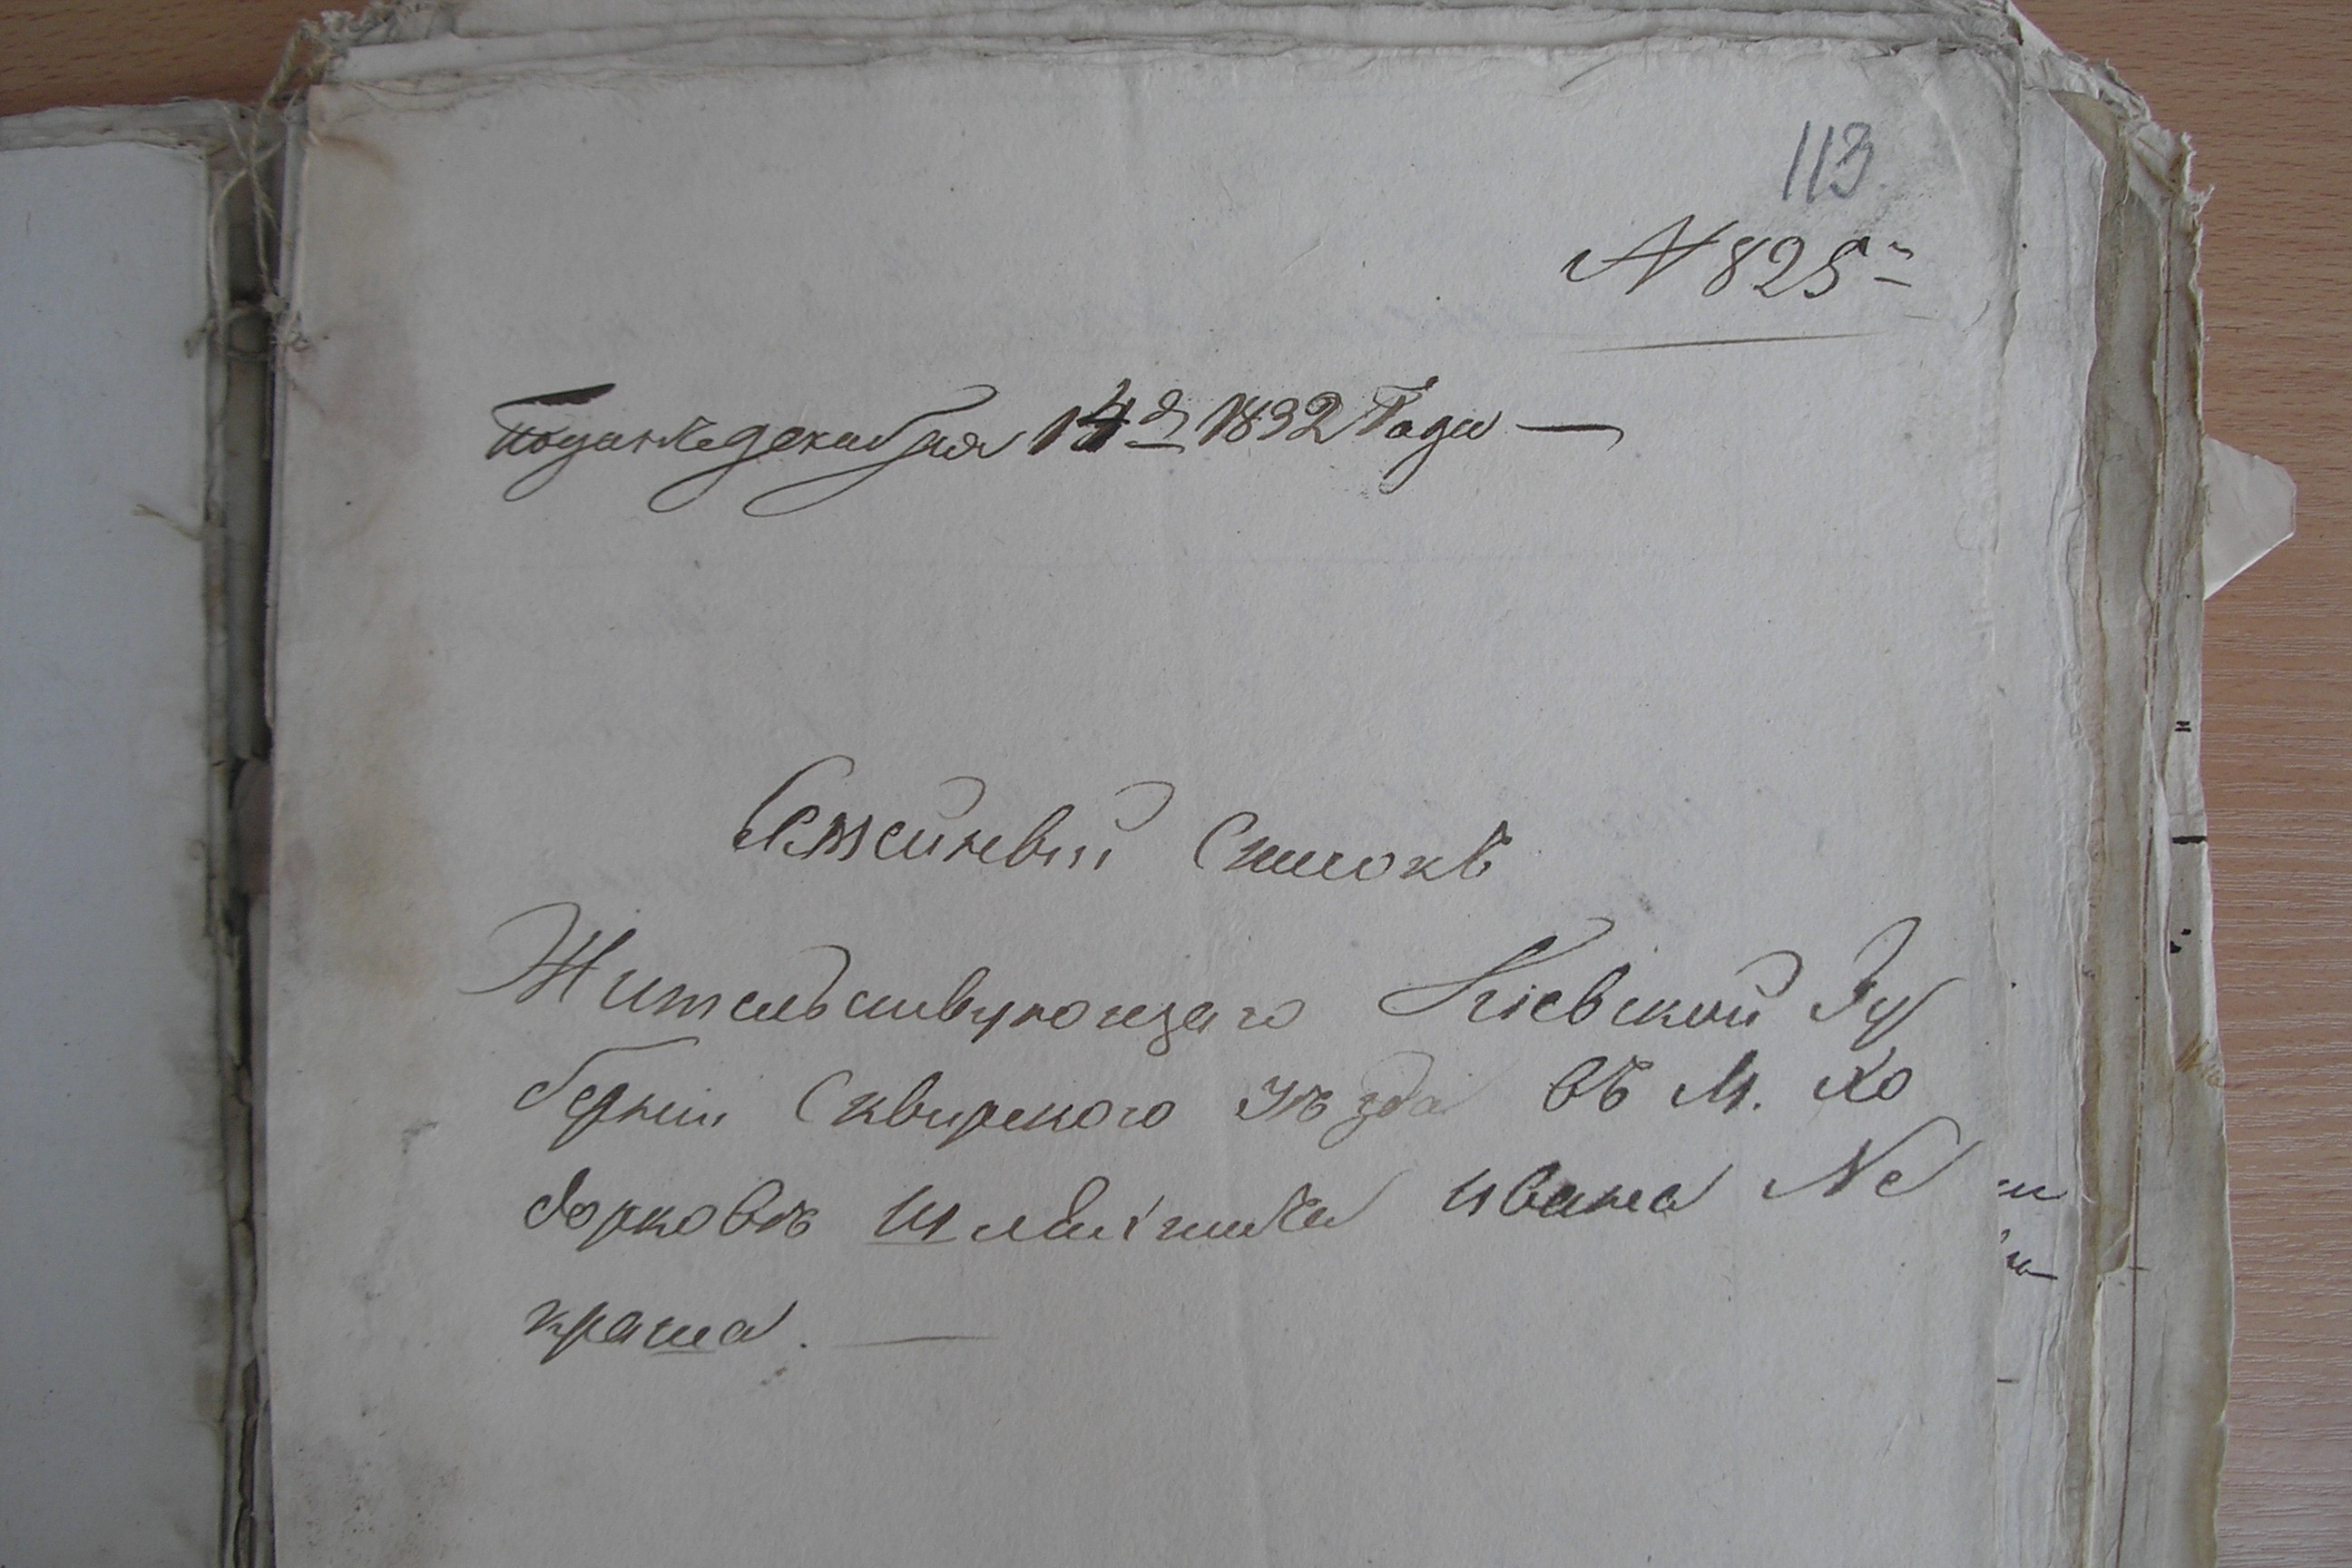 113
№ 825
Подан декабря 14 д 1832 Года —
Семейный Списокъ
Жительствующаго Кіевской Гу
берніи Сквирского Уѣзда въ М. Хо
дорковѣ Шляхтича Ивана Не
краша. —